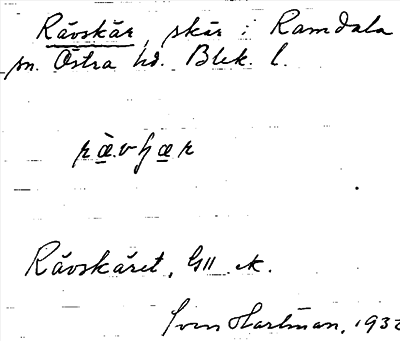 Rävskär, skär i Ramdala
sn. Östra hd. Blek. l.
Rävskäret, GII ek.
Sven Hartman, 193